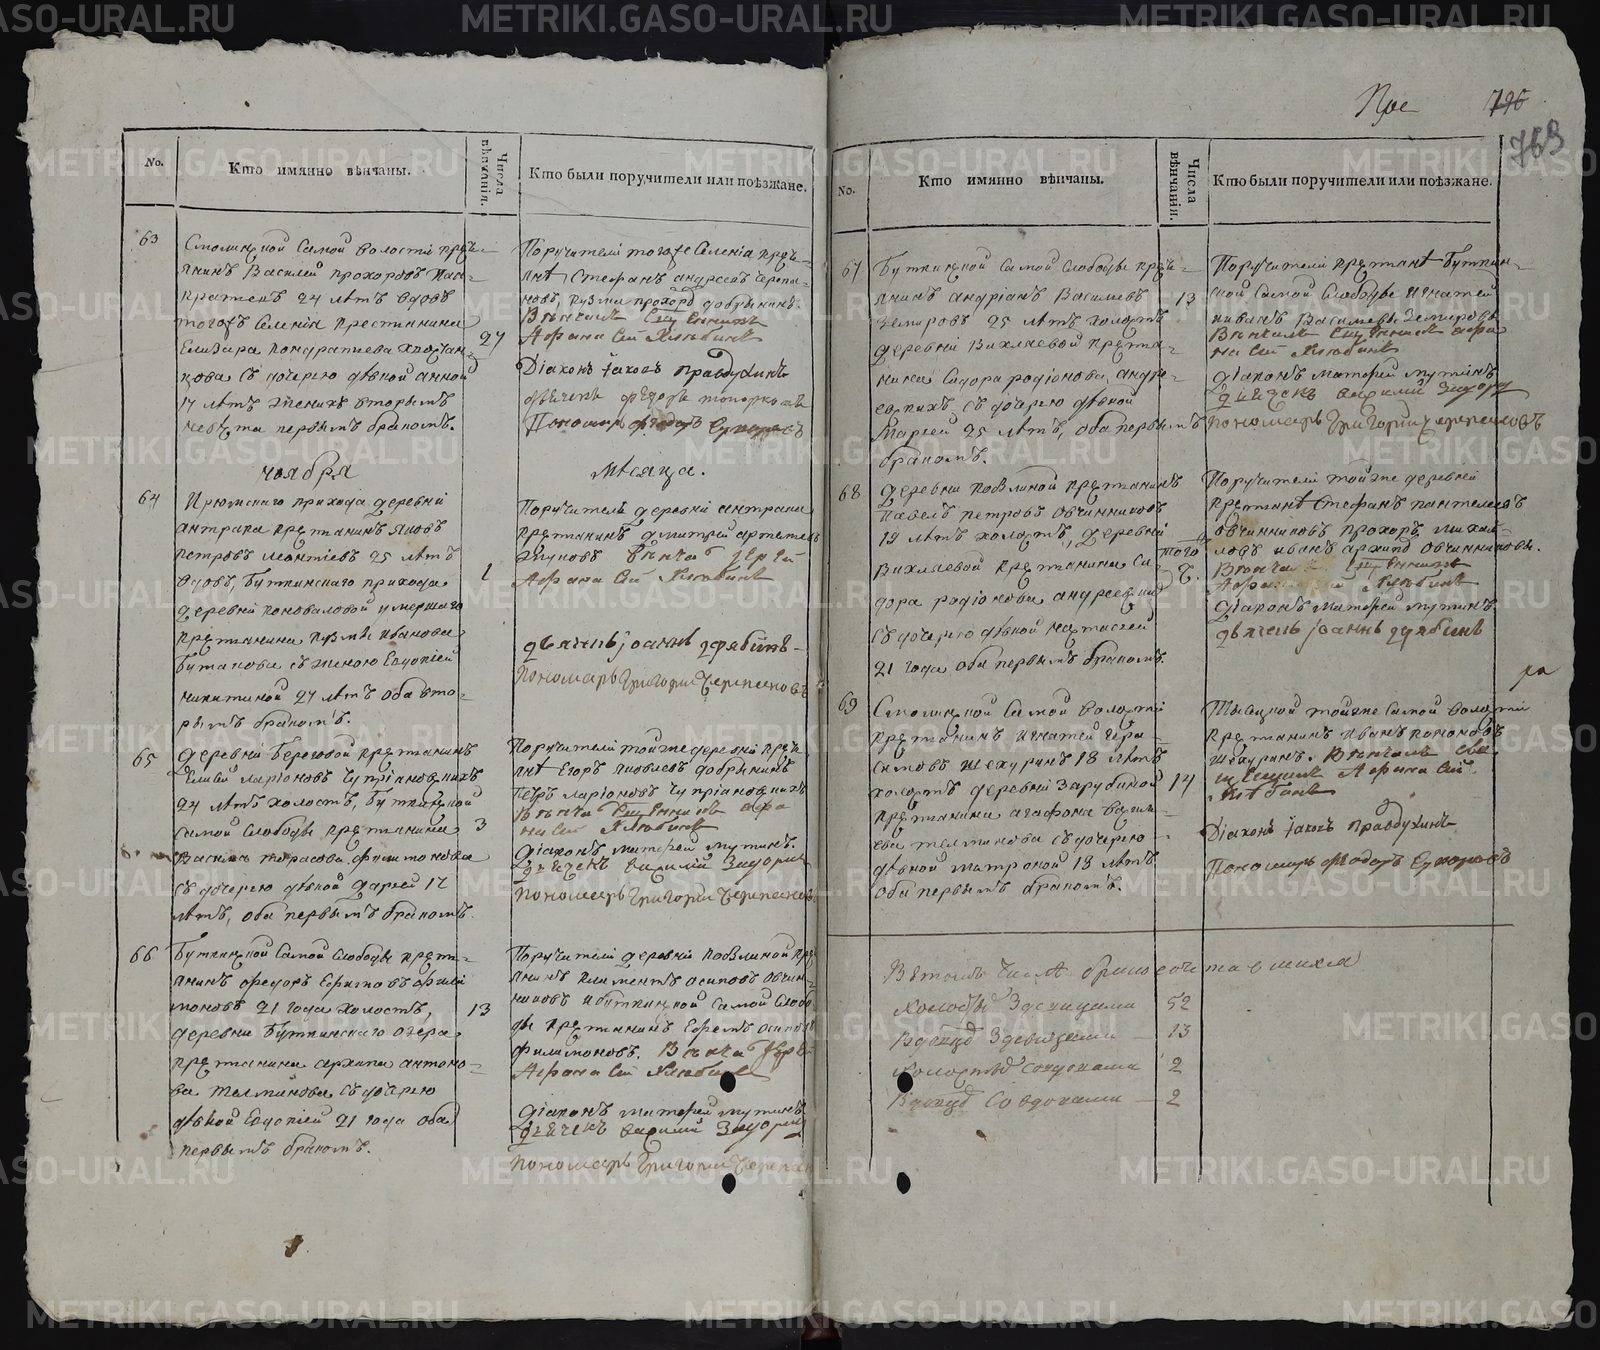 Прє 796
763
No. Кто имянно вѣнчаны. Числа вѣнчанія. Кто были поручители или поѣзжане.
63
Смолинской самой волости крестья-
янинъ Василей Прохоровъ
24 лѣтъ вдовъ
тогожъ селенія крестьянина
Елизара Кондратьева
съ дочерью дѣвкой Анной
17 лѣтъ женихъ вторымъ
невѣста первымъ бракомъ.
27
Поручители тогожъ селенія крестья-
янѣ Стефанъ Андреевъ
Кузма Прохоровъ Добрынинъ.
Вѣнчалъ Священникъ
Афанасій Хлюбинъ
Діаконъ Іаковъ Правдухинъ
дьячекъ Федоръ Топорковъ
Пономарь Федоръ Суворовъ
ноября мѣсяца.
64
прихода деревни
Антрака крестьянинъ Яковъ
Петровъ Леонтіевъ 25 лѣтъ
вдовъ, Буткинскаго прихода
деревни Коноваловой умершаго
крестьянина Кузмы Иванова
Бутакова съ женою Евдокіей
Никитиной 27 лѣтъ оба вто-
рымъ бракомъ.
1
Поручитель деревни Антрака
крестьянинъ Дмитрей Артемьевъ
Вѣнчалъ Іерей
Афанасій Хлюбинъ
дьячекъ Іоаннъ Дрябинъ
Пономарь Григорій Черепановъ
65
деревни Береговой крестьянинъ
Ларіоновъ Чупріяновскихъ
24 лѣтъ холостъ, Буткинской
самой слободы крестьянина
Василья Тарасова Филимонова
съ дочерью дѣвкой Дарьей 17
лѣтъ, оба первымъ бракомъ.
3
Поручители тойже деревни крестья-
янѣ Егоръ Яковлевъ Добрынинъ
Петръ Ларіоновъ Чупріяновскихъ
Вѣнчалъ Священникъ Афа
насій Хлюбинъ
Діаконъ Матфей Мутинъ.
дьячекъ Василій Задорин
Пономарь Григорій Черепановъ
66
Буткинской самой слободы кресть-
янинъ Федоръ Ефимовъ Фили
моновъ 21 года холостъ,
деревни Буткинскаго озера
крестьянина Архипа Антоно-
ва Талминова съ дочерью
дѣвкой Евдокіей 21 года оба
первымъ бракомъ.
13
Поручители деревни Казлиной
янинъ Климентъ Осиповъ Овчин
никовъ и Буткинской самой слобо
ды крестьянинъ Ефремъ Осиповъ
Филимоновъ. Вѣнчалъ Іерей
Афанасій Хлюбинъ
Діаконъ Матфей Мутинъ
дьячекъ Василій Задорин
Пономарь Григорій Черепан
No. Кто имянно вѣнчаны. Числа вѣнчанія. Кто были поручители или поѣзжане.
67
Буткинской самой слободы кресть-
янинъ Андріанъ Васильевъ
Земеровъ 25 лѣтъ холостъ
деревни Вихляевой крестья-
нина Сидора Родіонова Андре-
евскихъ съ дочерью дѣвкой
Марьей 25 лѣтъ, оба первымъ
бракомъ.
13
Поручители крестьянѣ Буткин-
ской самой слободы Игнатей
Иванъ Васильевы Земеровы
Вѣнчалъ Священникъ Афа
насій Хлюбинъ
Діаконъ Матфей Мутинъ
дьячекъ Василій Задорин
Пономарь Григорій Черепановъ
68
деревни Казлиной крестьянинъ
Павелъ Петровъ Овчинниковъ
19 лѣтъ холостъ, деревни
Вихляевой крестьянина Си-
дора Родіонова Андреевскихъ
съ дочерью дѣвкой Настасьей
21 года оба первымъ бракомъ.
того ч.
Поручители тойже деревни
крестьянѣ Стефанъ Пантелеевъ
Овчинниковъ Прохоръ Михай-
ловъ Иванъ Архипов Овчинниковы.
Вѣнчалъ Священникъ
Афанасій Хлюбинъ
Діаконъ Матфей Мутинъ
дьячекъ Іоаннъ Дрябинъ
69
Смолинской самой волости
крестьянинъ Игнатей Гера-
симовъ Шехуринъ 18 лѣтъ
холостъ деревни Зарубиной
крестьянина Агафона Василь-
ева Талминова съ дочерью
дѣвкой Матроной 18 лѣтъ
оба первымъ бракомъ.
14
Тысяцкой тойже самой волости
крестьянинъ Иванъ Кононовъ
Шехуринъ. Вѣнчалъ Свя
щенникъ Афанасій
Хлюбинъ
Діаконъ Іаковъ Правдухинъ
Пономарь Федоръ Суворовъ
Въ томъ числѣ бракосочетавшихся
Холостыхъ з девицами 52
Вдовцов з девицами 13
Холостых со вдовами 2
Вдовцов со вдовами 2
METRIKI.GASO-URAL.RU